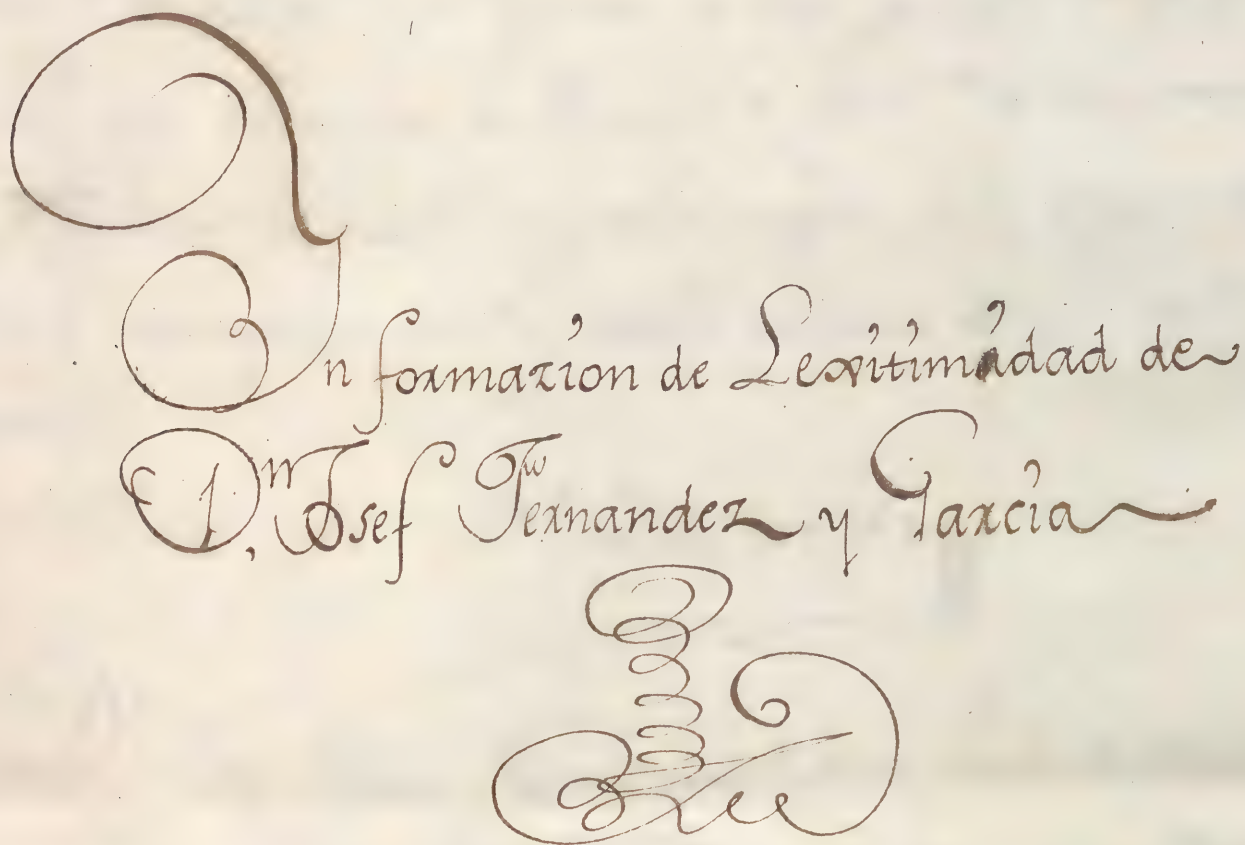 Informazion de Lexitimidad de
Dn, Josef Fernandez y Garcia